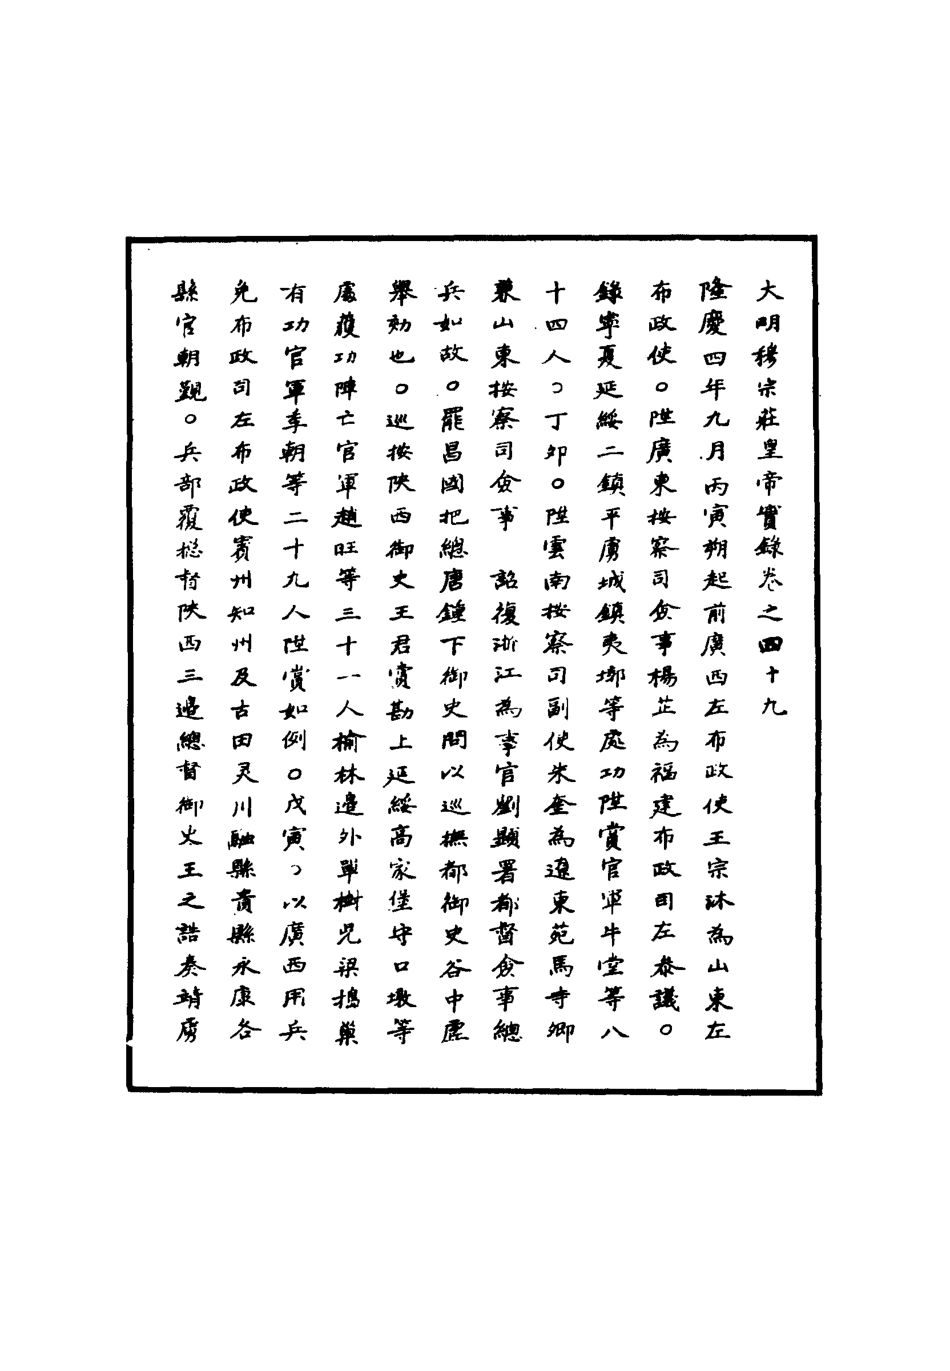 大明穆宗莊皇帝實錄卷之四十九
隆慶四年九月丙寅朔起前廣西左布政使王宗沐為山東左
布政使○陞廣東按察司僉事楊芷為福建布政司左叅議○
錄寧夏延綏二鎮平虜城鎮夷墩等處功陞賞官軍牛堂等八
十四人○丁卯○陞雲南按察司副使朱奎為遼東苑馬寺卿
兼山東按察司僉事 詔復浙江為事官劉顯署都督僉事總
兵如故○罷昌國把總唐鍾下御史問以巡撫都御史谷中虛
舉劾也○巡按陝西御史王君賞勘上延綏高家堡守口墩等
處獲功陣亡官軍趙旺等三十一人榆林邊外單樹兒梁搗巢
有功官軍李朝等二十九人陞賞如例○戊寅○以廣西用兵
免布政司左布政使賓州知州及古田灵川融縣貴縣永康各
縣官朝覲○兵部覆總督陝西三邊總督御史王之誥奏靖虜